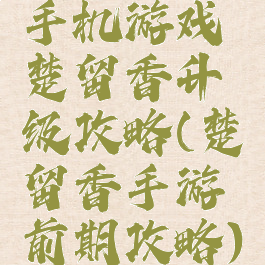 手机游戏
楚留香升
级攻略(楚
留香手游
前期攻略)